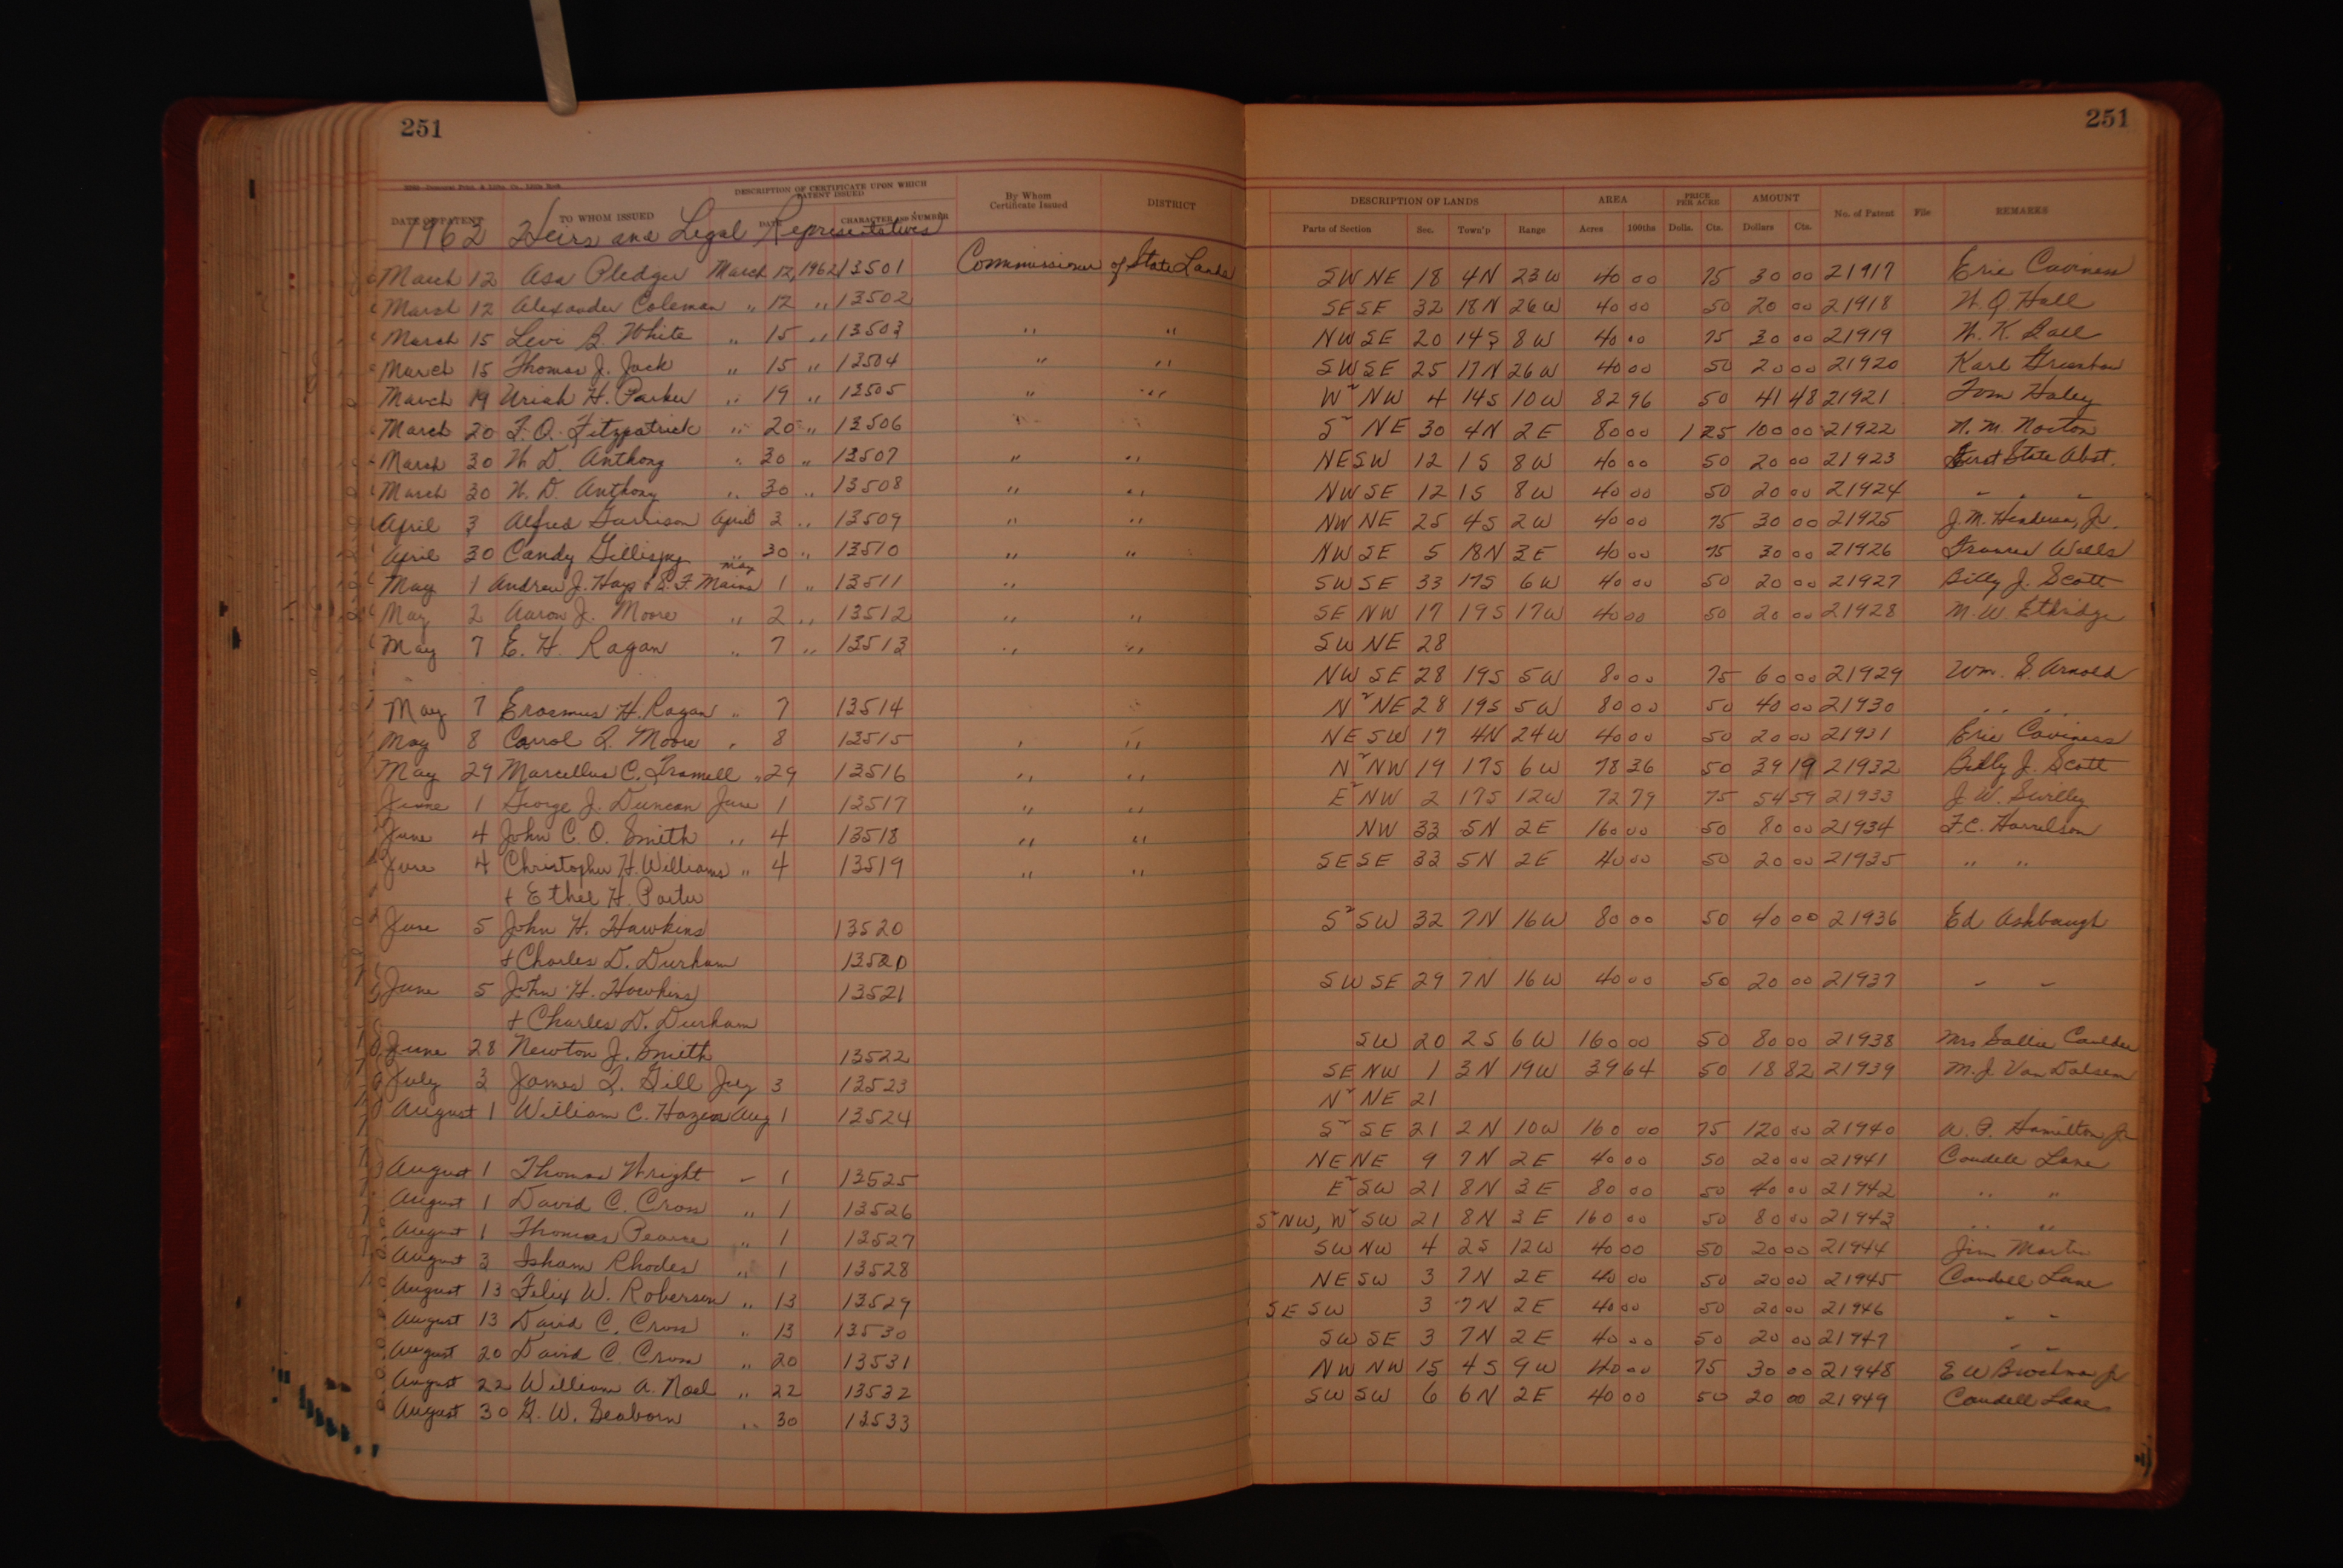 251
251
DESCRIPTION OF CERTIFICATE UPON WHICH PATENT ISSUED
By Whom Certificate Issued
DISTRICT
DESCRIPTION OF LANDS
AREA
PRICE PER ACRE
AMOUNT
No. of Patent
File
REMARKS
DATE OF PATENT
TO WHOM ISSUED
DATE
CHARACTER AND NUMBER
Parts of Section
Sec.
Town'p
Range
Acres
100ths
Dolls.
Cts.
Dollars
Cts.
1962 Heirs and Legal Representatives
March 12 Asa Pledger March 12, 1962 13501 Commissioner of State Lands SW NE 18 4N 23W 40 00 75 30 00 21917 Eric Caviness
March 12 Alexander Coleman " 12 " 13502 SE SE 32 18N 26W 40 00 50 20 00 21918 W. Q. Hall
March 15 Levi B. White " 15 " 13503 " " NW SE 20 14S 8W 40 00 75 30 00 21919 W. K. Ball
March 15 Thomas J. Jack " 15 " 13504 " " SW SE 25 17N 26W 40 00 50 20 00 21920 Karl
March 19 Uriah H. Parker " 19 " 13505 " " W² NW 4 14S 10W 82 96 50 41 48 21921 Tom Haley
March 20 F. O. Fitzpatrick " 20 " 13506 " " S² NE 30 4N 2E 80 00 1 25 100 00 21922 N. M. Norton
March 30 W. D. Anthony " 30 " 13507 " " NE SW 12 1S 8W 40 00 50 20 00 21923 First State Abst.
March 30 W. D. Anthony " 30 " 13508 " " NW SE 12 1S 8W 40 00 50 20 00 21924 " " "
April 3 Alfred Garrison April 3 " 13509 " " NW NE 25 4S 2W 40 00 75 30 00 21925 J. M. Henderson, Jr.
April 30 Candy Gillispy " 30 " 13510 " " NW SE 5 18N 3E 40 00 75 30 00 21926 Frances Wells
May 1 Andrew J. Hays & S. F. Mains May 1 " 13511 " SW SE 33 17S 6W 40 00 50 20 00 21927 Billy J. Scott
May 2 Aaron J. Moore " 2 " 13512 " " SE NW 17 19S 17W 40 00 50 20 00 21928 M. W. Ethridge
May 7 E. H. Ragan " 7 " 13513 " " SW NE 28
NW SE 28 19S 5W 80 00 75 60 00 21929 Wm. S. Arnold
May 7 Erasmus H. Ragan " 7 13514 " N² NE 28 19S 5W 80 00 50 40 00 21930 " "
May 8 Carrol Q. Moore " 8 13515 " " NE SW 17 4N 24W 40 00 50 20 00 21931 Eric Caviness
May 29 Marcellus C. Tramell " 29 13516 " " N² NW 19 17S 6W 78 36 50 39 19 21932 Billy J. Scott
June 1 George J. Duncan June 1 13517 " " E² NW 2 17S 12W 72 79 75 54 59 21933 J. W. Swilley
June 4 John C. O. Smith " 4 13518 " " NW 33 5N 2E 160 00 50 80 00 21934 F. C. Harrelson
June 4 Christopher H. Williams " 4 13519 " " SE SE 33 5N 2E 40 00 50 20 00 21935 " "
& Ethel H. Porter
June 5 John H. Hawkins 13520 S² SW 32 7N 16W 80 00 50 40 00 21936 Ed Ashbaugh
& Charles D. Durham 13520
June 5 John H. Hawkins 13521 SW SE 29 7N 16W 40 00 50 20 00 21937 " "
& Charles D. Durham
June 28 Newton J. Smith 13522 SW 20 2S 6W 160 00 50 80 00 21938 Mrs Sallie Caulder
July 3 James Q. Gill July 3 13523 SE NW 1 3N 19W 39 64 50 18 82 21939 M. J. Van Dalsem
August 1 William C. Hazen Aug 1 13524 N² NE 21
S² SE 21 2N 10W 160 00 75 120 00 21940 A. P. Hamilton Jr
August 1 Thomas Wright " 1 13525 NE NE 9 7N 2E 40 00 50 20 00 21941 Caudell Lane
August 1 David C. Cross " 1 13526 E² SW 21 8N 3E 80 00 50 40 00 21942 " "
August 1 Thomas Pearce " 1 13527 S² NW, W² SW 21 8N 3E 160 00 50 80 00 21943 " "
August 3 Isham Rhodes " 1 13528 SW NW 4 2S 12W 40 00 50 20 00 21944 Jim Martin
August 13 Felix W. Roberson " 13 13529 NE SW 3 7N 2E 40 00 50 20 00 21945 Caudell Lane
August 13 David C. Cross " 13 13530 SE SW 3 7N 2E 40 00 50 20 00 21946 " "
August 20 David C. Cross " 20 13531 SW SE 3 7N 2E 40 00 50 20 00 21947 " "
August 22 William A. Noel " 22 13532 NW NW 15 4S 9W 40 00 75 30 00 21948 E W Brockman Jr
August 30 G. W. Seaborn " 30 13533 SW SW 6 6N 2E 40 00 50 20 00 21949 Caudell Lane